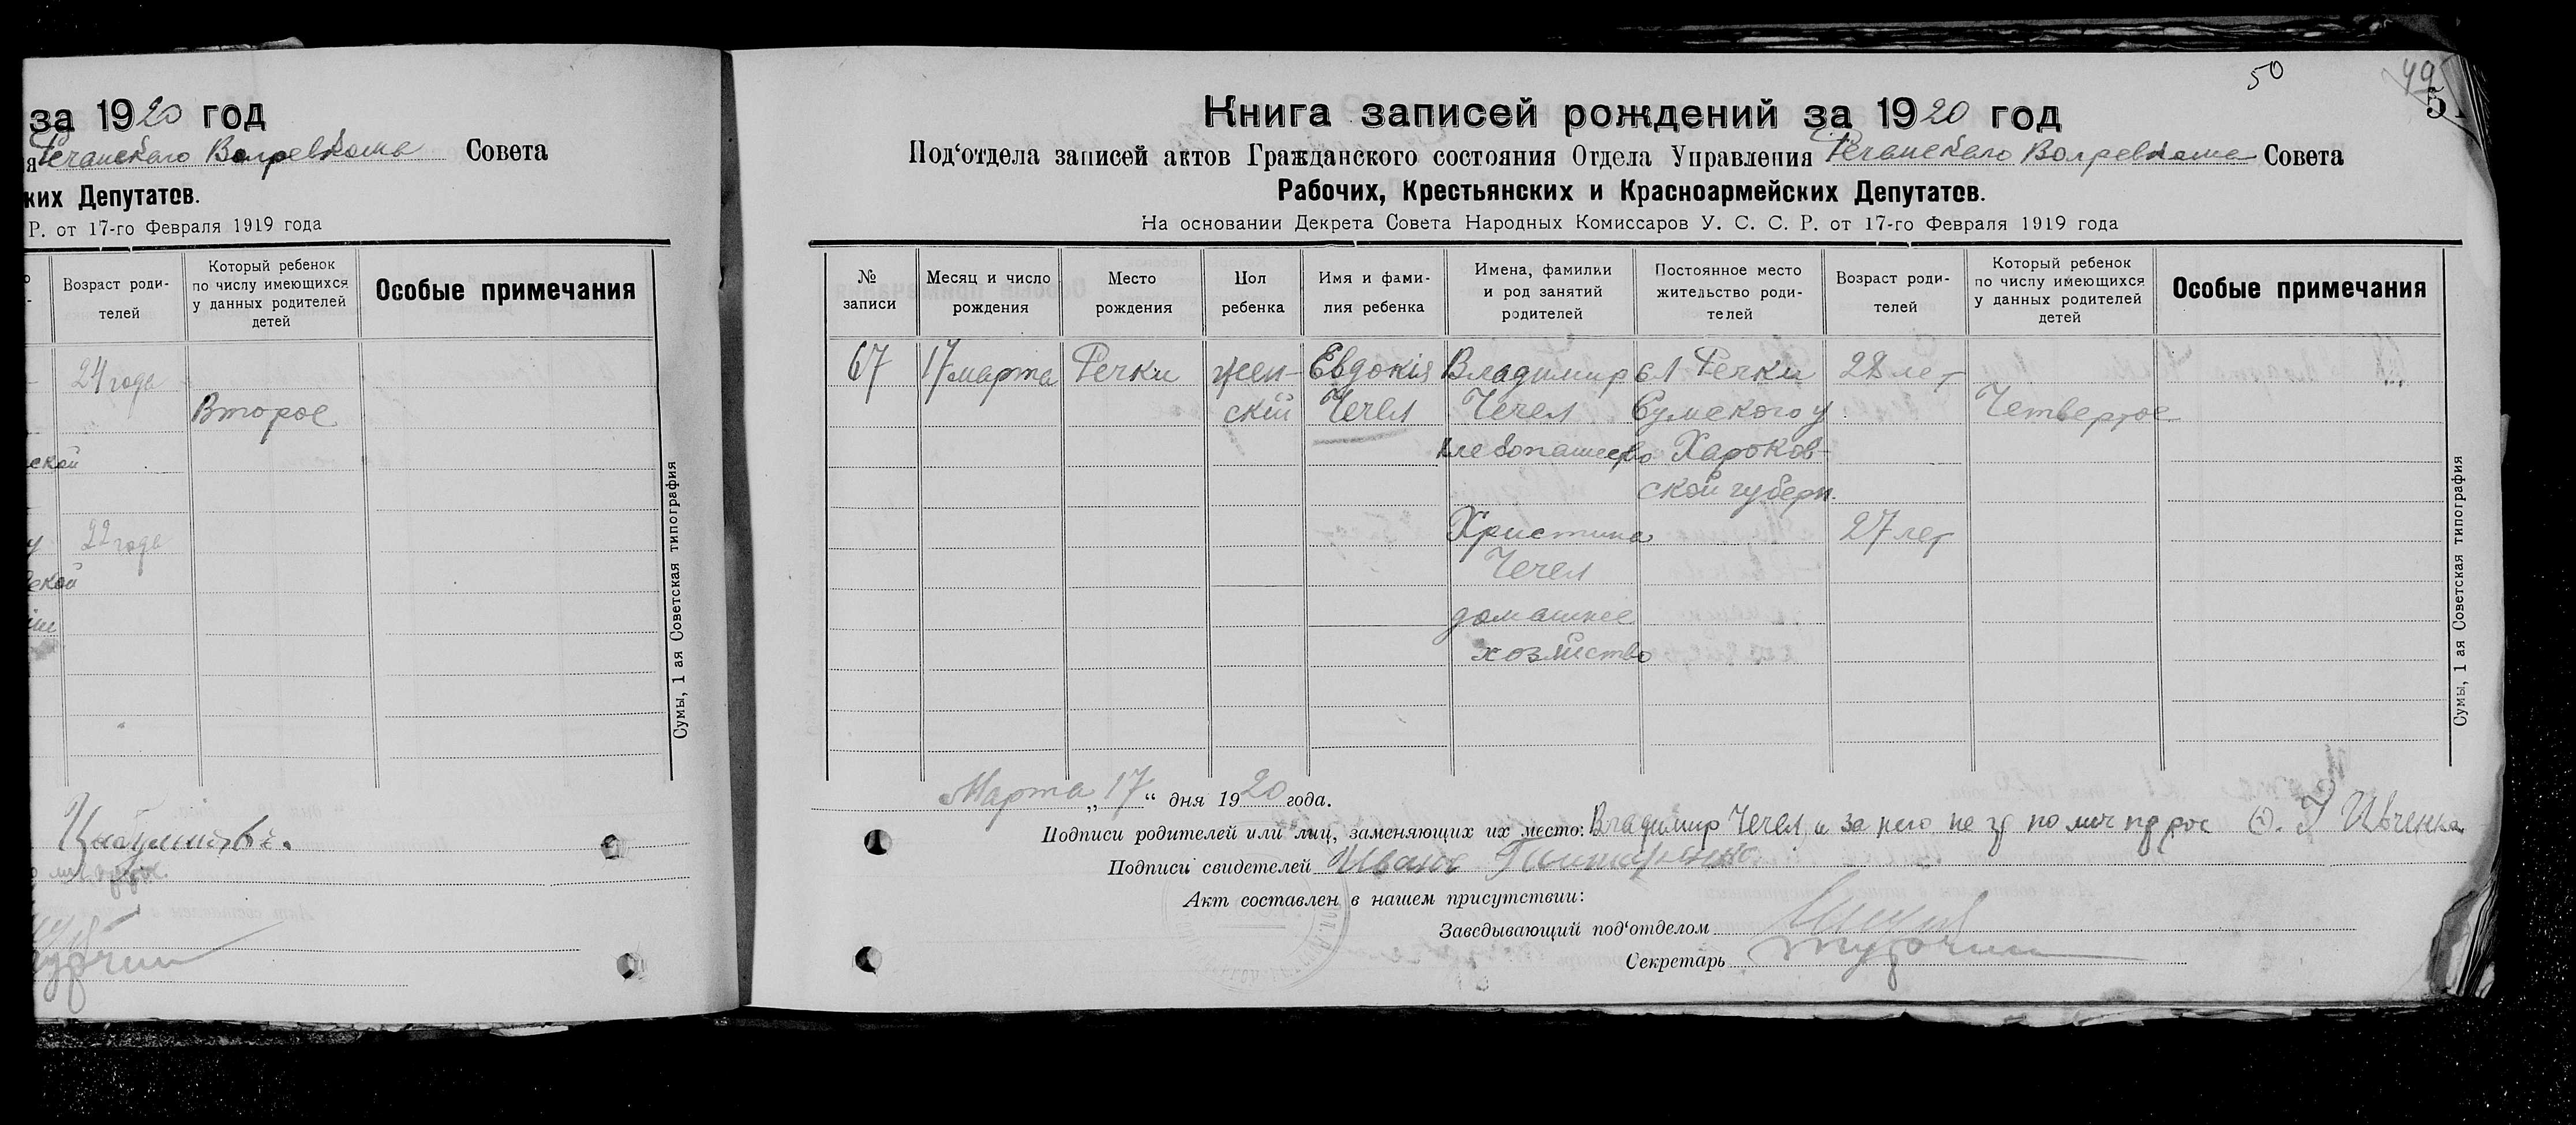 за 1920 год
Речанского Волревкома Совета
ких Депутатов.
Р. от 17-го Февраля 1919 года
Возраст роди-
телей
Который ребенок
по числу имеющихся
у данных родителей
детей
Особые примечания
24 года
Второе
ской
22 года
ской
Сумы, 1 ая Советская типография
50
49
5
Книга записей рождений за 1920 год
Под‘отдела записей актов Гражданского состояния Отдела Управления Речанскаго Волревкома Совета
Рабочих, Крестьянских и Красноармейских Депутатов.
На основании Декрета Совета Народных Комиссаров У. С. С. Р. от 17-го Февраля 1919 года
№
записи
Месяц и число
рождения
Место
рождения
Пол
ребенка
Имя и фами-
лия ребенка
Имена, фамилии
и род занятий
родителей
Постоянное место
жительство роди-
телей
Возраст роди-
телей
Который ребенок
по числу имеющихся
у данных родителей
детей
Особые примечания
67 17 марта Речки жен- Евдокія Владимир сл Речки 28 лет
скій Чечел Чечел Сумского у. Четвертое
хлебопашество Харьков-
ской губерн.
Христина 27 лет
Чечел
домашнее
хозяйство
Сумы, 1 ая Советская типография
Марта „17“ дня 1920 года.
Подписи родителей или лиц, заменяющих их место: Владимир Чечел, а за него негр по лич прос Ивченко
Подписи свидетелей Иванъ
Акт составлен в нашем присутствии:
Заведывающий под‘отделом
Секретарь